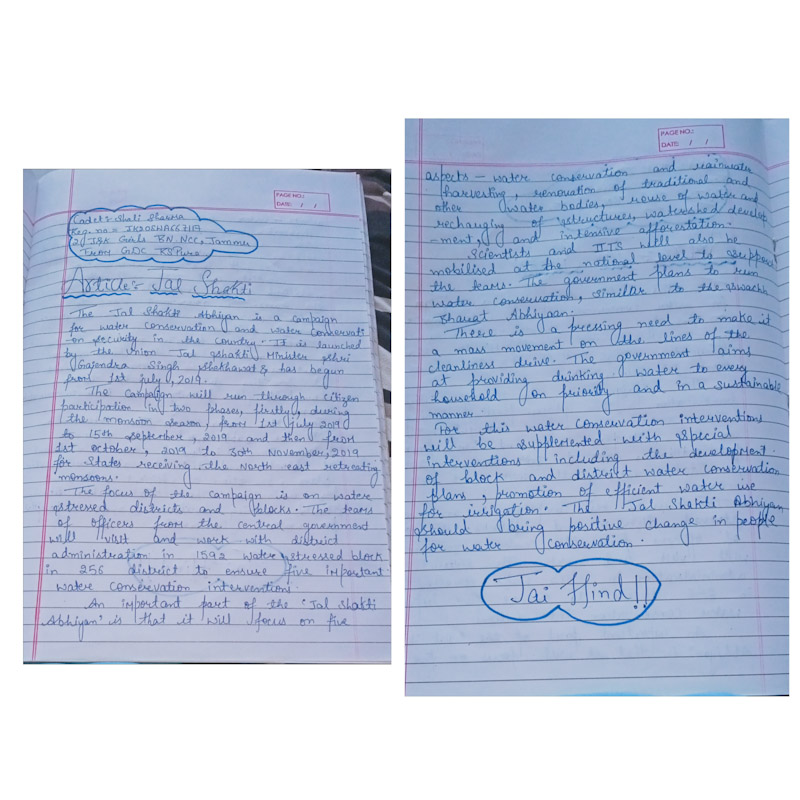 PAGE NO.:
DATE: / /
Cadet:- Shali Sharma
Reg. no =
2 J&K Girls BN NCC, Jammu
From GDC RSPura
Article:- Jal Shakti
The Jal Shakti Abhiyan is a campaign
for water conservation and water conservati
-on security in the country. It is launched
by the Union Jal Shakti Minister Shri
Gajendra Singh Shekhawat & has begun
from 1st July, 2019.
The campaign will run through citizen
participation in two phases, firstly, during
the monsoon season, from 1st July 2019
to 15th September, 2019 and then from
1st October, 2019 to 30th November, 2019
for States receiving the North east retreating
monsoons.
The focus of the campaign is on water
stressed districts and blocks. The teams
of officers from the central government
will visit and work with district
administration in 1592 water stressed block
in 256 district to ensure five important
water conservation interventions.
An important part of the 'Jal Shakti
Abhiyan' is that it will focus on five
PAGE NO.:
DATE: / /
aspects - water conservation and rainwater
harvesting, renovation of traditional and
other water bodies, reuse of water and
recharging of structures, watershed develop
-ment, and intensive afforestation.
Scientists and IITS will also be
mobilised at the national level to support
the teams. The government plans to run
water conservation, similar to the Swachh
Bharat Abhiyaan.
There is a pressing need to make it
a mass movement on the lines of the
cleanliness drive. The government aims
at providing drinking water to every
household on priority and in a sustainable
manner.
For this water conservation interventions
will be supplemented with special
interventions including the development
of block and district water conservation
plans, promotion of efficient water use
for irrigation. The Jal Shakti Abhiyan
should bring positive change in people
for water conservation.
Jai Hind!!